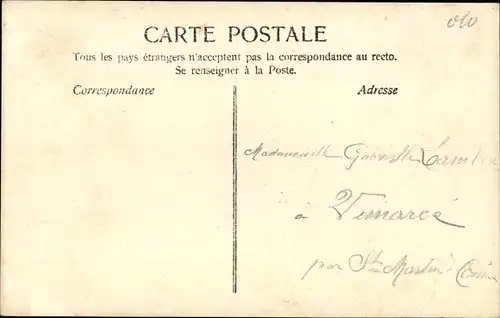 CARTE POSTALE
Tous les pays étrangers n'acceptent pas la correspondance au recto.
Se renseigner à la Poste.
Correspondance
Adresse
Mademoiselle Gabrielle
à Vimarcé
par St Martin